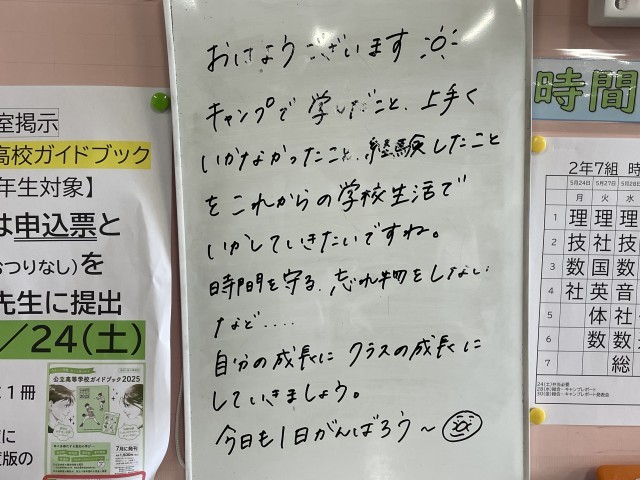 おはようございます
キャンプで学んだこと、上手く
いかなかったこと、経験したこと
をこれからの学校生活で
いかしていきたいですね。
時間を守る、忘れ物をしない
など....
自分の成長に クラスの成長に
していきましょう。
今日も1日がんばろう〜
室掲示
高校ガイドブック
年生対象】
は申込票と
おつりなし)を
先生に提出
/24(土)
1冊
公立高等学校ガイドブック2025
7月に発刊
度版の
時間
2年7組 時
5月24日 5月27日 5月28日
月 火 水
1 理 理 理
2 技 社 技
3 数 国 数
4 社 英 音
5 体 社
6 数 数
7 総